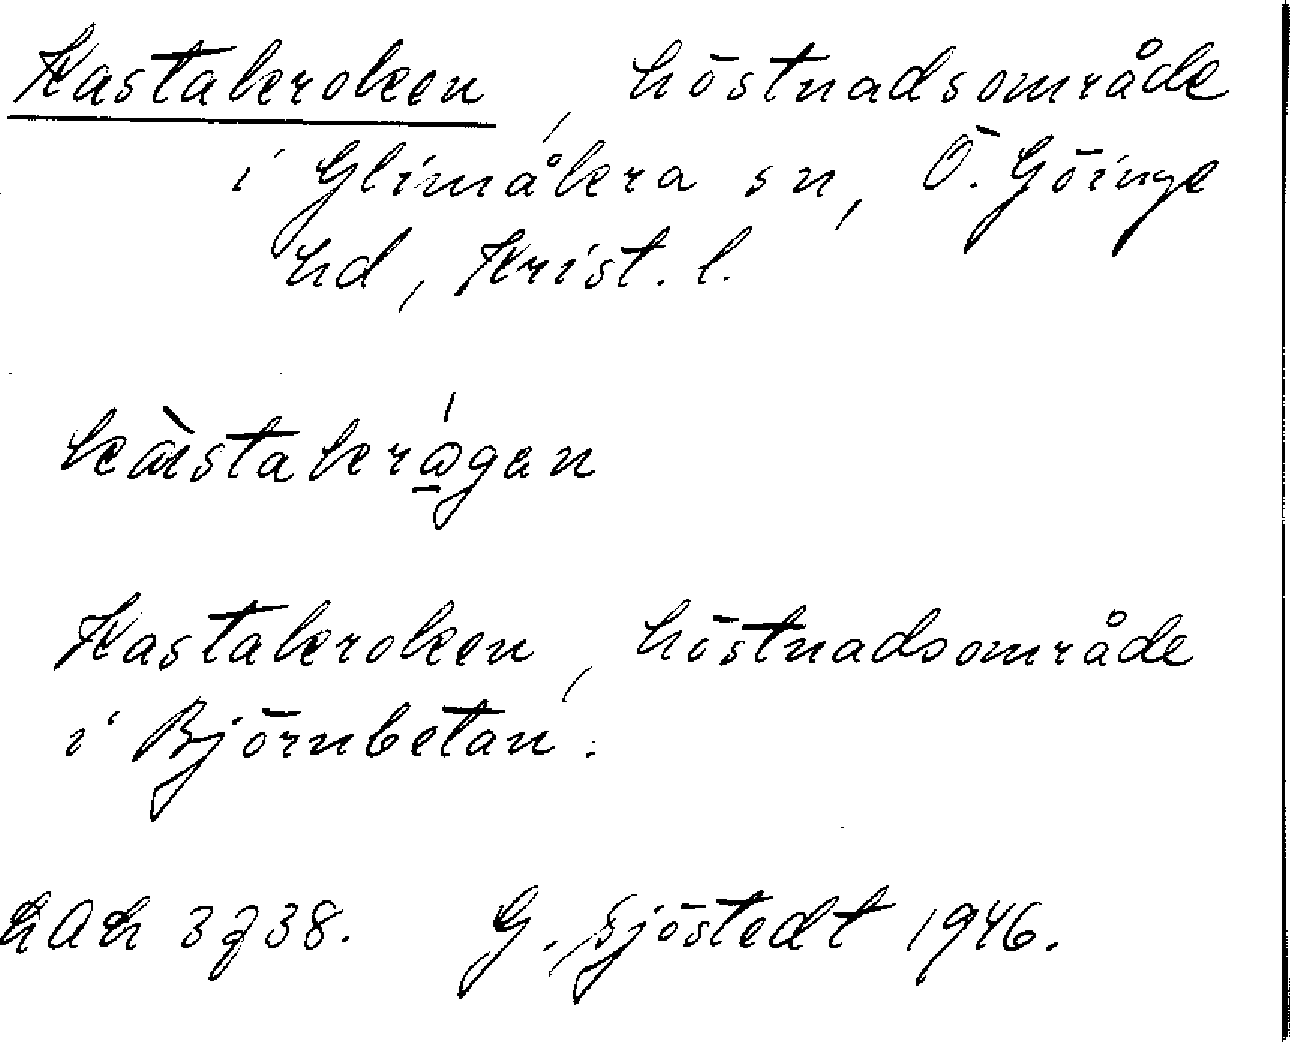 Kastakroken, höstnadsområde
i Glimåkra sn, Ö. Göinge
hd, Krist. l.
Kastakroken, höstnadsområde
i Björnbetan.
3738. G. Sjöstedt 1946.